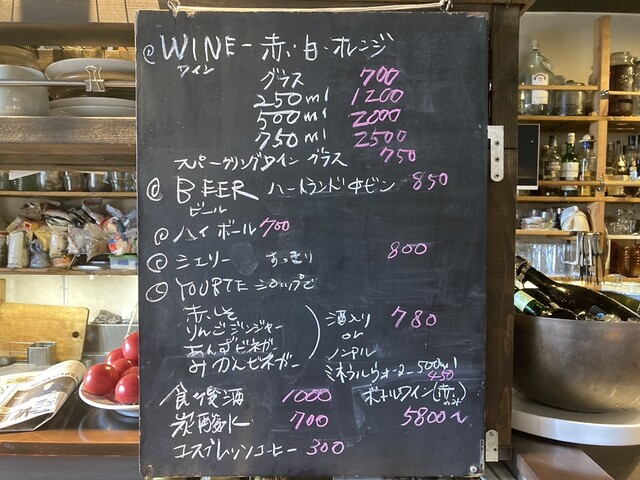 WINE - 赤・白・オレンジ
ワイン
グラス 700
250ml 1200
500ml 2000
750ml 2500
スパークリングワイン グラス 750
BEER ハートランド中ビン 850
ビール
ハイボール 700
シェリー すっきり 800
YOURTE シロップで
赤しそ
りんごジンジャー
あんずビネガー
みかんビネガー
酒入り or ノンアル 780
ミネラルウォーター 500ml 450
食後酒 1000
ボトルワイン(赤のみ) 5800〜
炭酸水 700
エスプレッソコーヒー 300